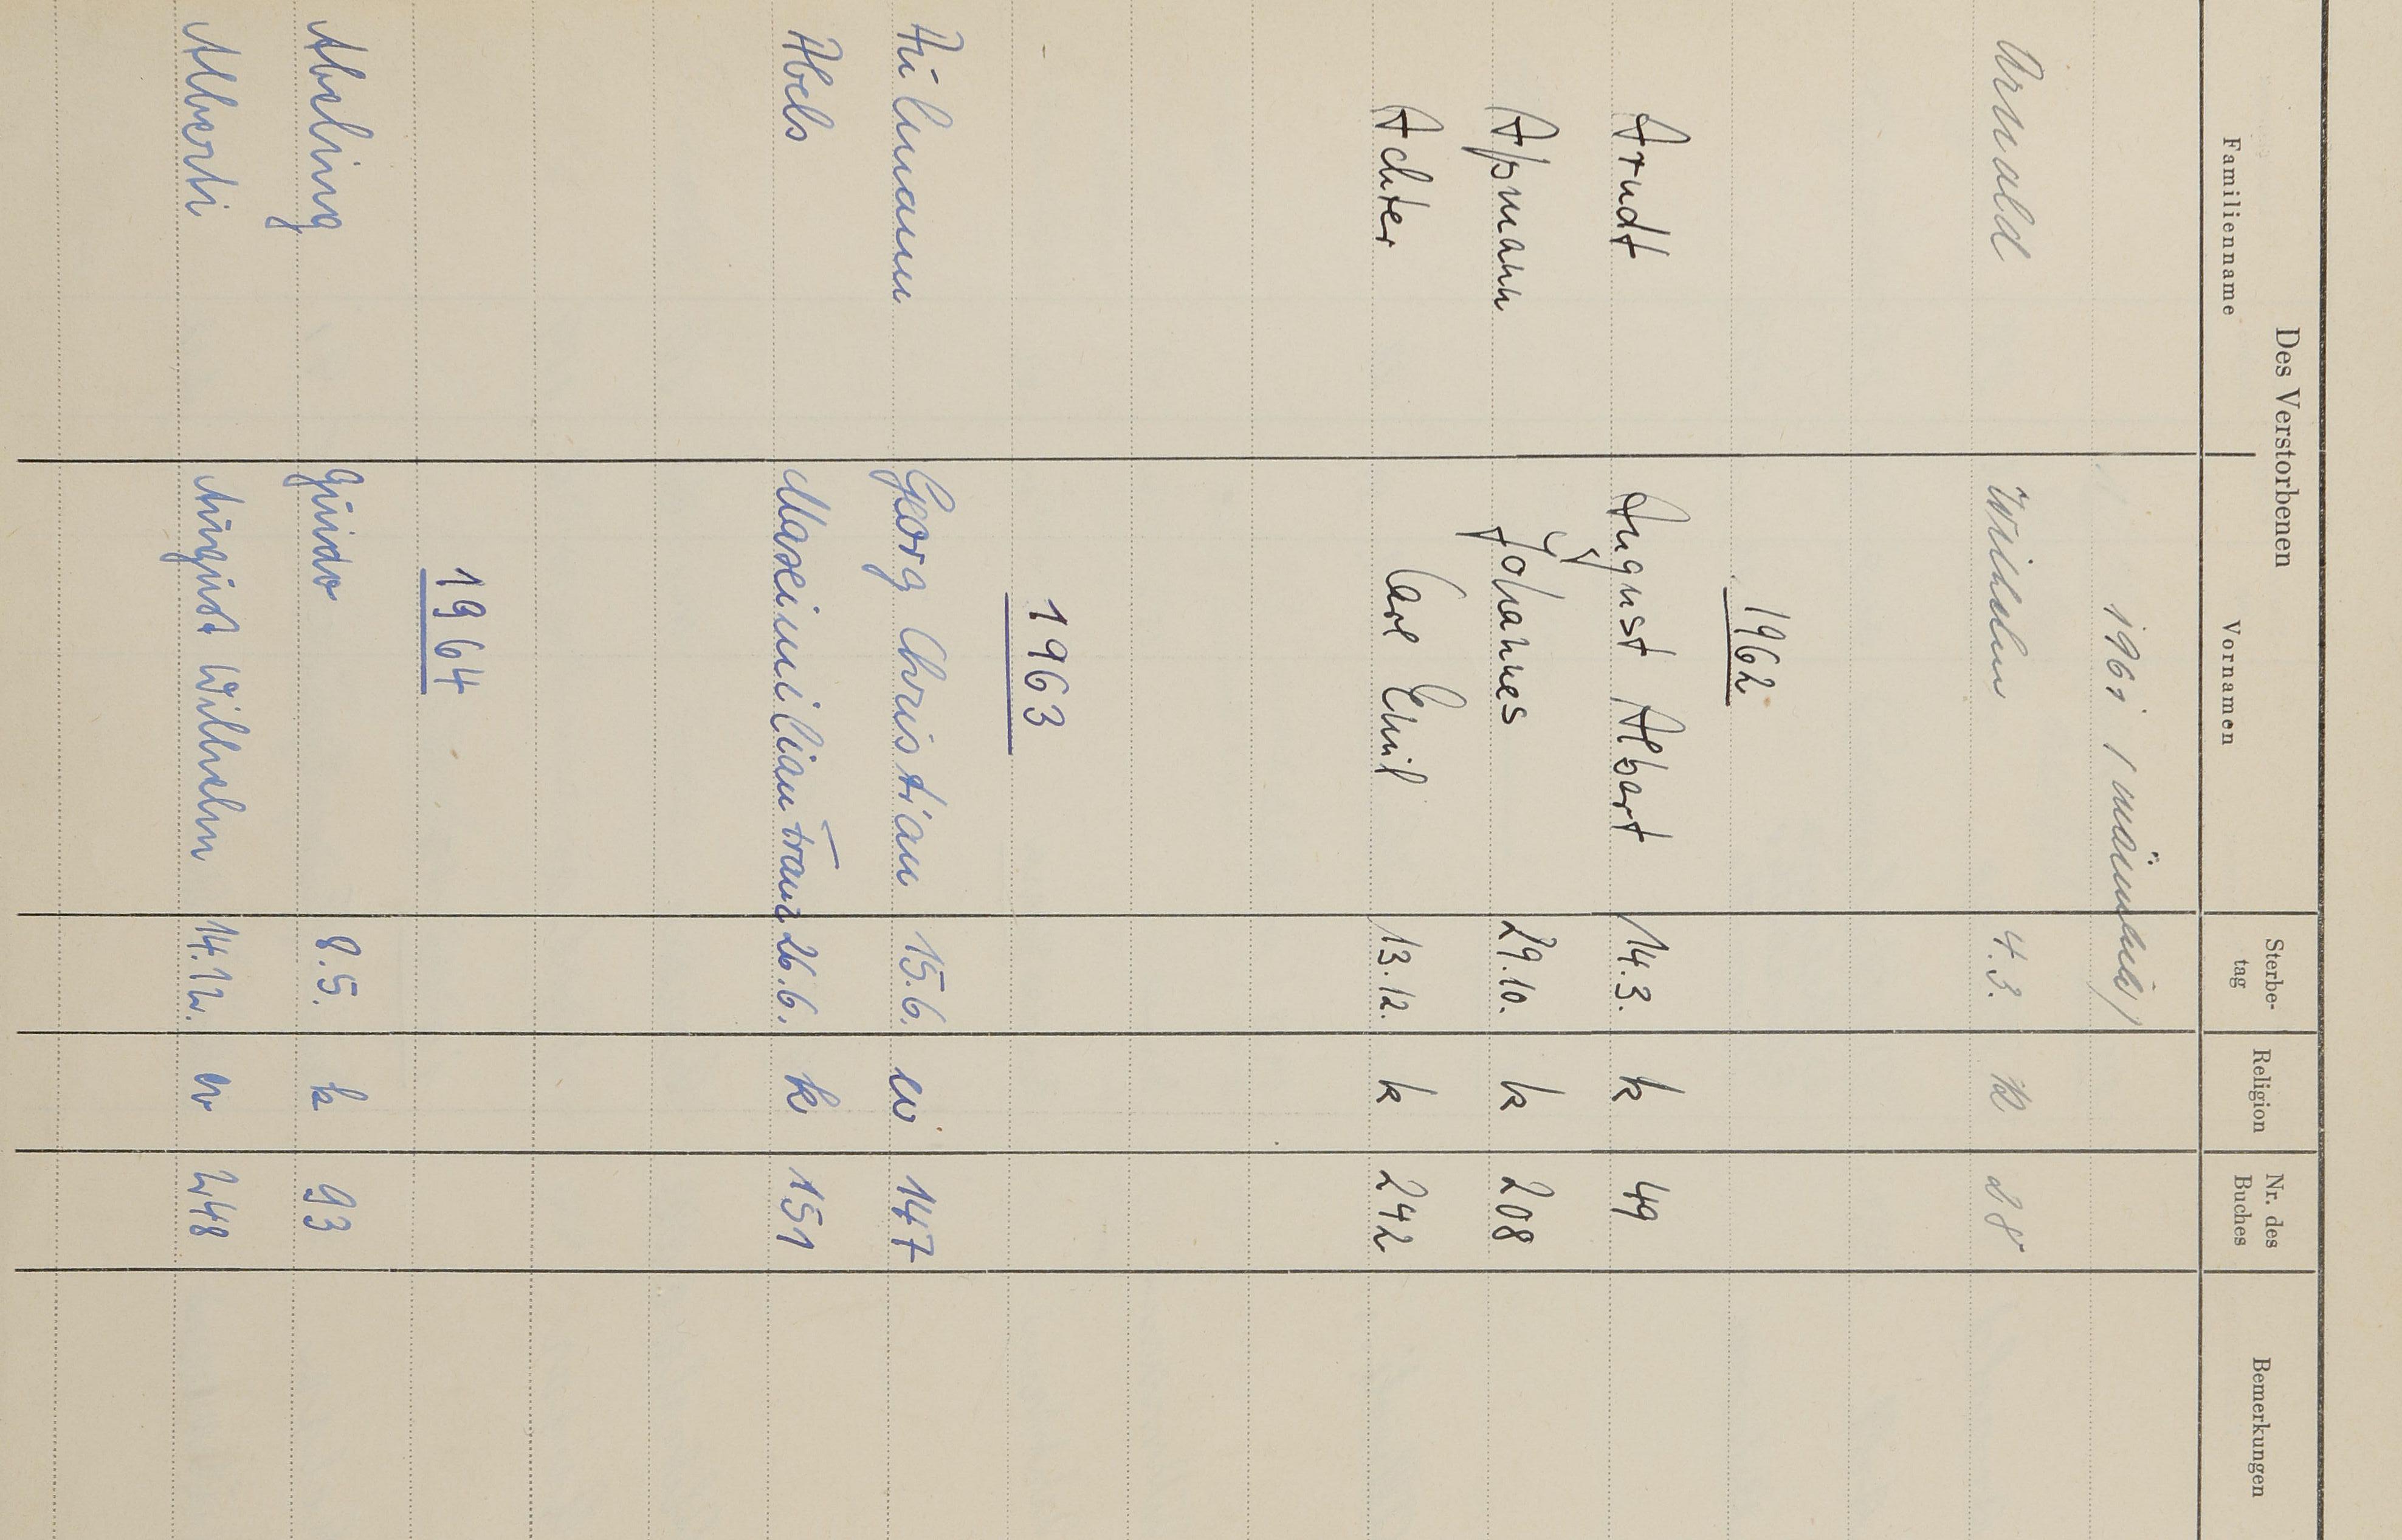 Des Verstorbenen
Familienname Vornamen Sterbe-tag Religion Nr. des Buches Bemerkungen
1961 (männlich)
Arnold Wilhelm 4.3. k 28
1962
Arndt August Albert 14.3. k 49
Apmann Johannes 29.10. k 208
Achter Carl Emil 13.12. k 242
1963
Aülmann Georg Christian 15.6. ev 147
Abels Maximilian Franz 26.6. k 151
1964
Abeling Guido 8.5. k 93
Alberti August Wilhelm 14.12. ev 248